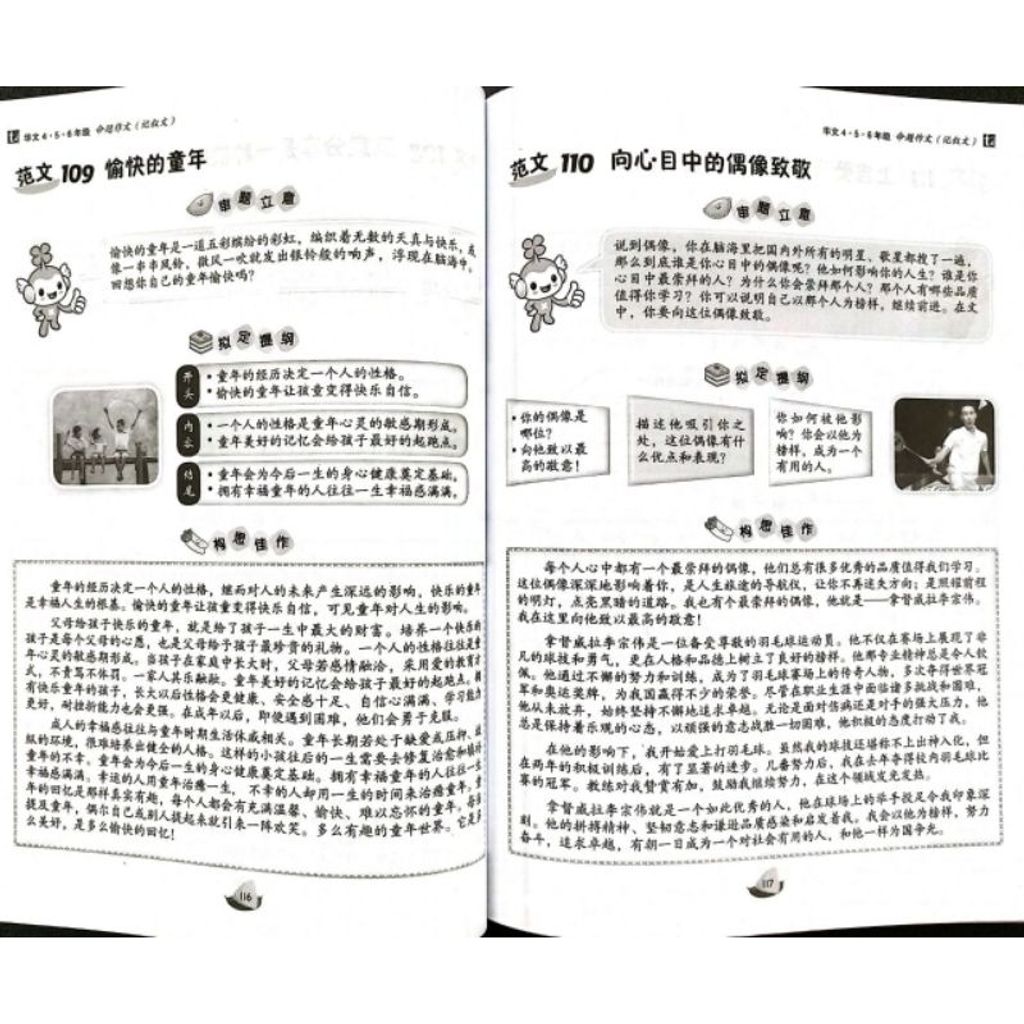 华文4·5·6年级 命题作文(记叙文)
范文 109 愉快的童年
审题立意
愉快的童年是一道五彩缤纷的彩虹,编织着无数的天真与快乐,
像一串串风铃,微风一吹就发出银铃般的响声,浮现在脑海中。
回想你自己的童年愉快吗?
拟定提纲
开头
• 童年的经历决定一个人的性格。
• 愉快的童年让孩童变得快乐自信。
内容
• 一个人的性格是童年心灵的敏感期形成。
• 童年美好的记忆会给孩子最好的起跑点。
结尾
• 童年会为今后一生的身心健康奠定基础。
• 拥有幸福童年的人往往一生幸福感满满。
构思佳作
童年的经历决定一个人的性格,继而对人的未来产生深远的影响。快乐的童年
是幸福人生的根基。愉快的童年让孩童变得快乐自信,可见童年对人生的影响。
父母给孩子快乐的童年,就是给了孩子一生中最大的财富。培养一个快乐的
孩子是每个父母的心愿,也是父母给予孩子最珍贵的礼物。一个人的性格往往是童
年心灵的敏感期形成。当孩子在家庭中长大时,父母若感情融洽,采用爱的教育方
式,不责骂不体罚。一家人其乐融融。童年美好的记忆会给孩子最好的起跑点。拥
有快乐童年的孩子,长大以后性格会更健康、安全感十足、自信心满满、学习能力
更好,耐挫折能力也会更强。在成年以后,即使遇到困难,他们会勇于克服。
成人的幸福感往往与童年时期生活休戚相关。童年长期若处于缺爱或压抑、
纵的环境,很难培养出健全的人格。这样的小孩往后的一生需要去修复治愈和填补
童年的不幸。童年会为今后一生的身心健康奠定基础。拥有幸福童年的人往往一生
幸福感满满。幸运的人用童年治癒一生,不幸的人却用一生的时间来治癒童年。
年的回忆是那样真实有趣,每个人都会有充满温馨、愉快、难以忘怀的童年。每当
提及童年,偶尔自己或别人提起来就引来一阵欢笑。多么有趣的童年世界。它是多
么美好,是多么愉快的回忆!
116
华文4·5·6年级 命题作文(记叙文)
范文 110 向心目中的偶像致敬
审题立意
说到偶像,你在脑海里把国内外所有的明星、歌星都搜了一遍,
那么到底谁是你心目中的偶像呢?他如何影响你的人生?谁是你
心目中最崇拜的人?为什么你会崇拜那个人?那个人有哪些品质
值得你学习?你可以说明自己以那个人为榜样,继续前进。在文
中,你要向这位偶像致敬。
拟定提纲
• 你的偶像是
哪位?
• 向他致以最
高的敬意!
描述他吸引你之
处,这位偶像有什
么优点和表现?
你如何被他影
响?你会以他为
榜样,成为一个
有用的人。
构思佳作
每个人心中都有一个最崇拜的偶像,他们总有很多优秀的品质值得我们学习。
这位偶像深深地影响着你,是人生旅途的导航仪,让你不再迷失方向;是照耀前程
的明灯,点亮黑暗的道路。我也有个最崇拜的偶像,他就是——拿督威拉李宗伟。
我在这里向他致以最高的敬意!
拿督威拉李宗伟是一位备受尊敬的羽毛球运动员。他不仅在赛场上展现了非
凡的球技和勇气,更在人格和品德上树立了良好的榜样。他那专业精神总是令人钦
佩。他通过不懈的努力和训练,成为了羽毛球赛场上的传奇人物,多次夺得世界冠
军和奥运奖牌,为我国赢得不少的荣誉。尽管在职业生涯中面临诸多挑战和困难,
他从未放弃,始终坚持不懈地追求卓越。无论是面对伤病还是对手的强大压力,他
总是保持着乐观的心态,以顽强的意志战胜一切困难,他积极的态度打动了我。
在他的影响下,我开始爱上打羽毛球。虽然我的球技还堪称不上出神入化,但
在两年的积极训练后,有了显著的进步。几番努力后,我在去年夺得校内羽毛球比
赛的冠军。教练对我赞赏有加,鼓励我继续努力,在这个领域发光发热。
拿督威拉李宗伟就是一个如此优秀的人,他在球场上的举手投足令我印象深
刻。他的拼搏精神、坚韧意志和谦逊品质感染和启发着我。我会以他为榜样,努力
奋斗,追求卓越,有朝一日成为一个对社会有用的人,和他一样为国争光。
117